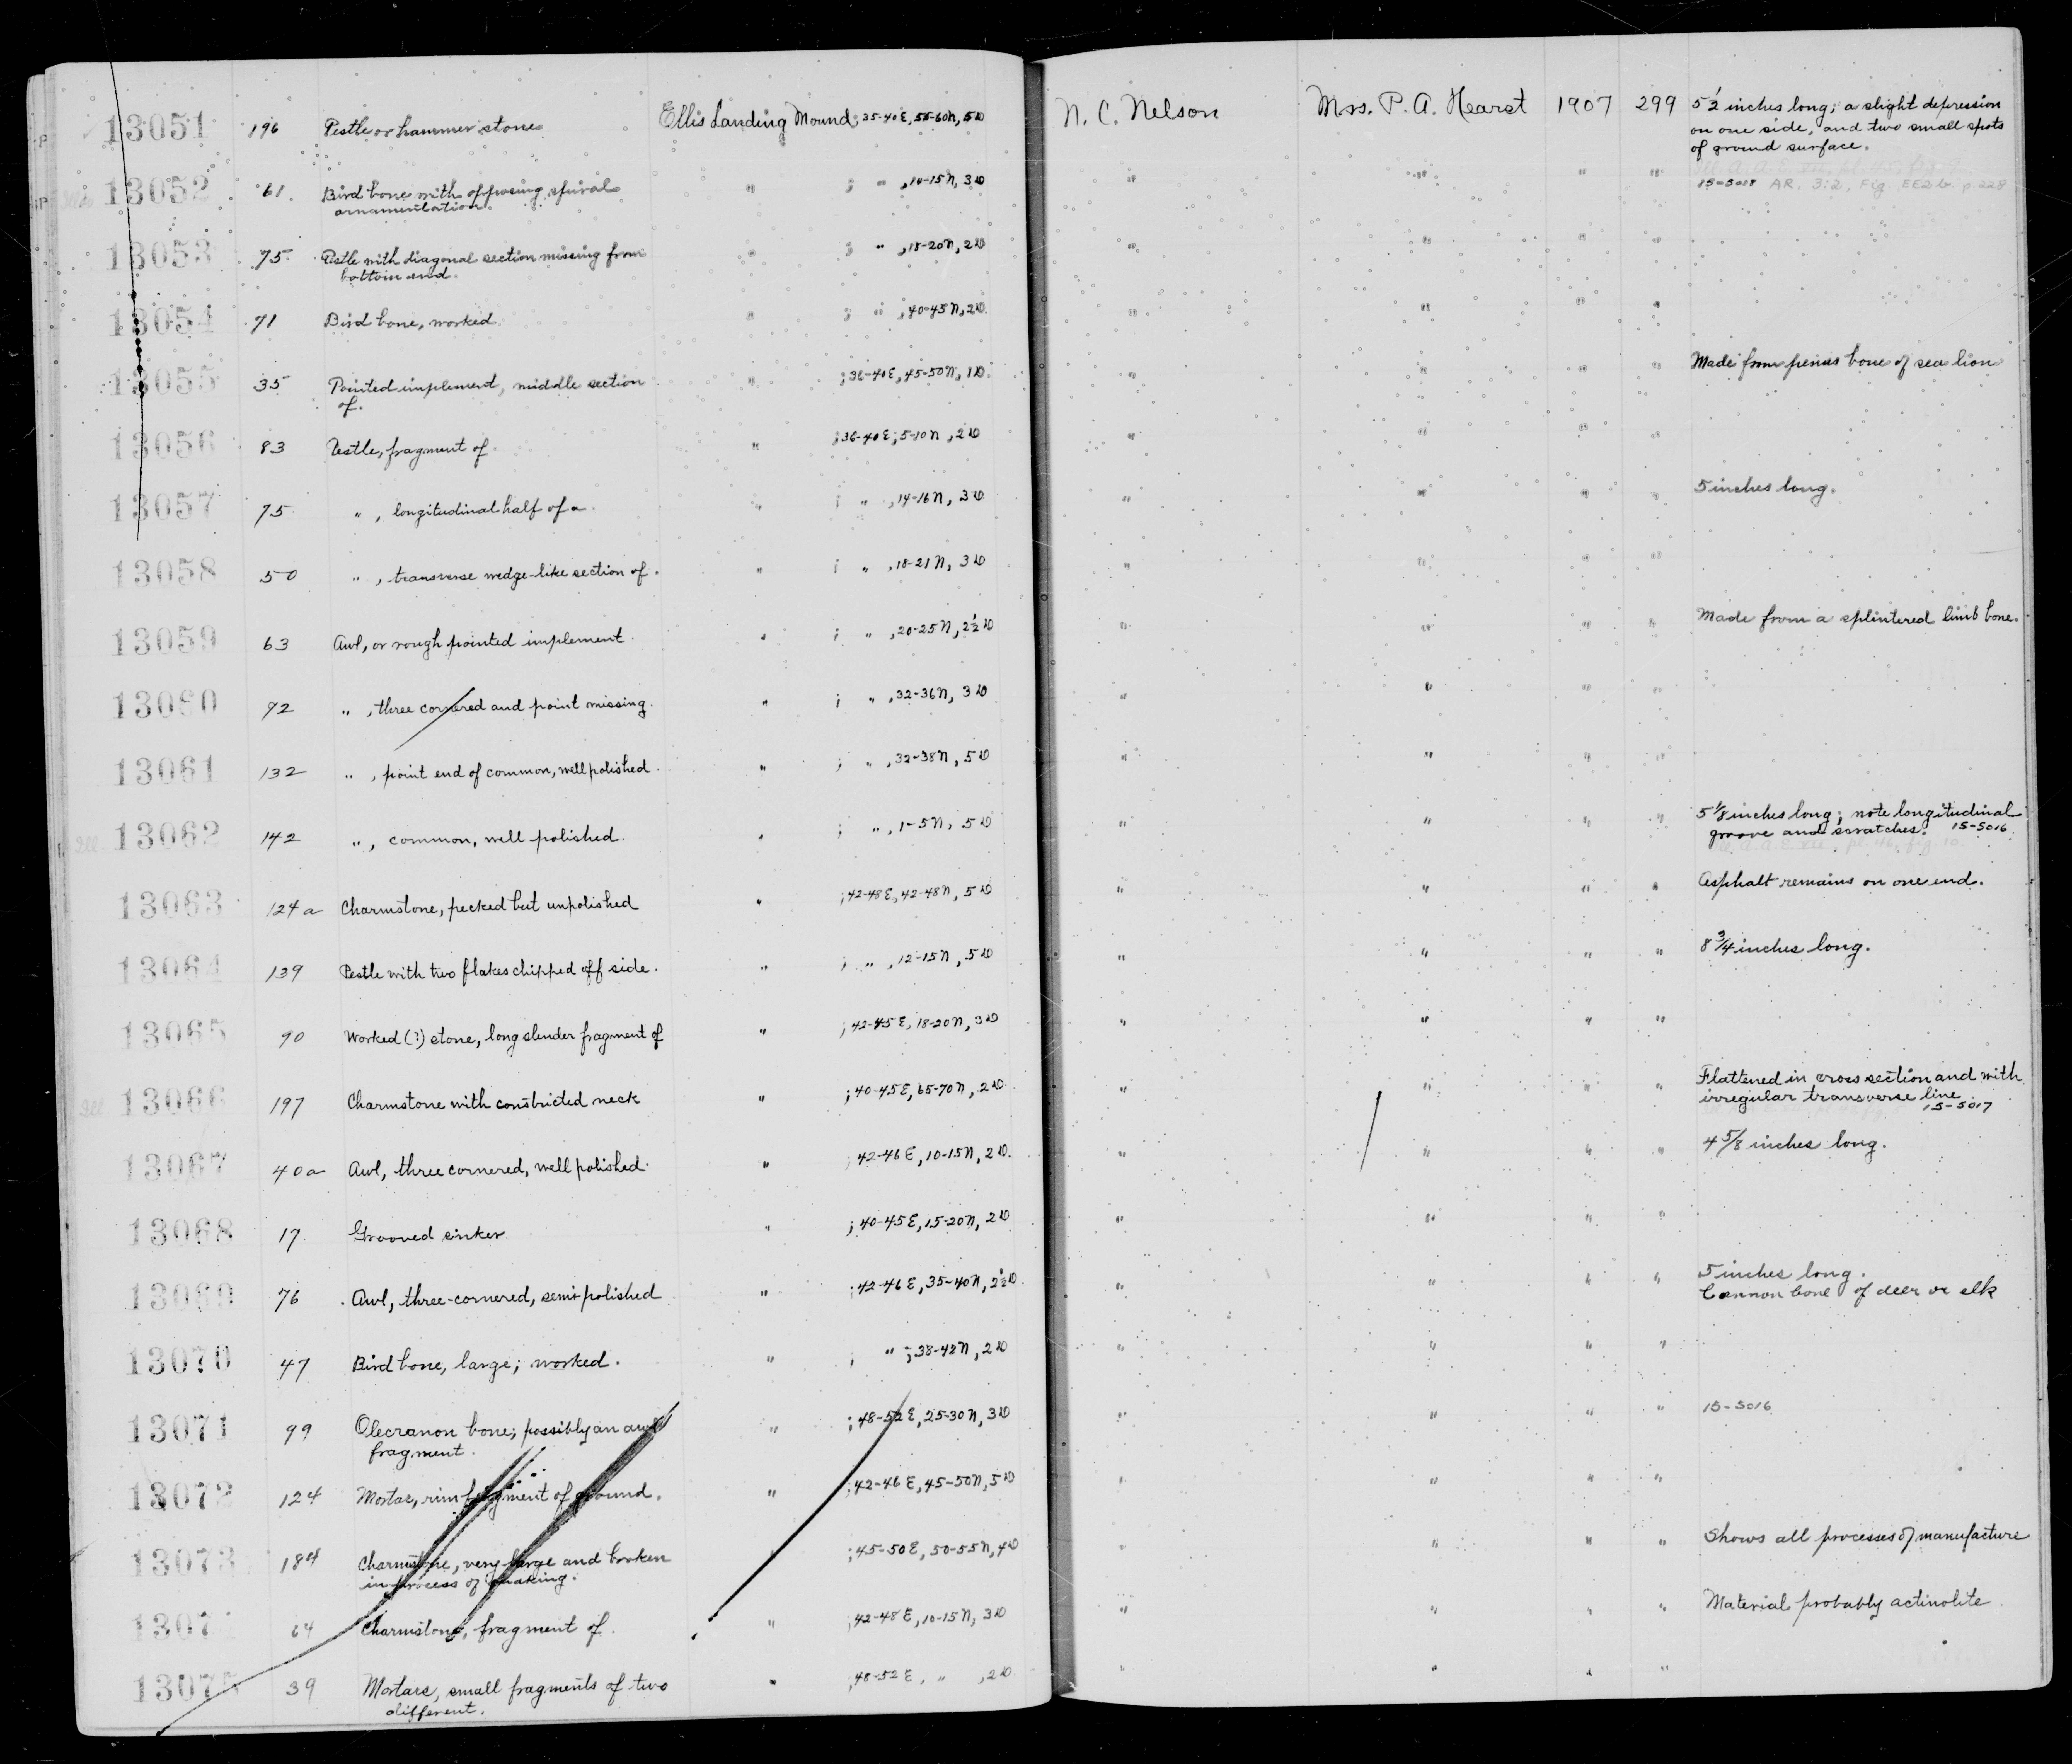 13051 196 Pestle or hammer stone Ellis Landing Mound; 35-40E, 55-60N, 5D N. C. Nelson Mrs. P. A. Hearst 1907 299 5½ inches long; a slight depression
on one side, and two small spots
of ground surface.
13052 61. Bird bone with opposing spiral " ; " , 10-15N, 3D " " " " 15-5008 AR, 3:2, Fig. EE2b. p 228
ornamentation.
13053 75 Pestle with diagonal section missing from " ; " , 18-20N, 2D " " " "
bottom end.
13054 71 Bird bone, worked " ; " , 40-45N, 2D. " " " "
13055 35 Pointed implement, middle section " ; 36-40E, 45-50N, 1D. " " " " Made from penis bone of sea lion
of.
13056 83 Pestle, fragment of. " ; 36-40E; 5-10N , 2D " " " "
13057 75 " , longitudinal half of a. " ; " , 14-16N, 3D " " " " 5 inches long.
13058 50 " , transverse wedge-like section of. " ; " , 18-21N, 3D " " " "
13059 63 Awl, or rough pointed implement. " ; " , 20-25N, 2½D " " " " Made from a splintered limb bone.
13060 92 " , three cornered and point missing. " ; " , 32-36N, 3D " " " "
13061 132 " , point end of common, well polished. " ; " , 32-38N, 5D " " " "
13062 142 " , common, well polished. " ; " , 1-5N, 5D " " " " 5⅛ inches long; note longitudinal
groove and scratches. 15-5016
13063 124a Charmstone, pecked but unpolished " ; 42-48E, 42-48N, 5D " " " " Asphalt remains on one end.
13064 139 Pestle with two flakes chipped off side. " ; " , 12-15N, 5D " " " " 8¾ inches long.
13065 90 Worked (?) stone, long slender fragment of " ; 42-45E, 18-20N, 3D " " " "
13066 197 Charmstone with constricted neck " ; 40-45E, 65-70N, 2D. " " " " Flattened in cross section and with
irregular transverse line.
15-5017
13067 40a Awl, three cornered, well polished. " ; 42-46E, 10-15N, 2D. " " " " 4⅝ inches long.
13068 17 Grooved sinker " ; 40-45E, 15-20N, 2D " " " "
13069 76 Awl, three-cornered, semi-polished " ; 42-46E, 35-40N, 2½D. " " " " 5 inches long.
Cannon bone of deer or elk
13070 47 Bird bone, large; worked. " ; " ; 38-42N, 2D " " " "
13071 99 Olecranon bone; possibly an awl " ; 48-52E, 25-30N, 3D " " " " 15-5016
fragment.
13072 124 Mortar, rim fragment of ground. " ; 42-46E, 45-50N, 5D " " " "
13073 184 Charmstone, very large and broken " ; 45-50E, 50-55N, 4D " " " " Shows all processes of manufacture
in process of making.
13074 64 Charmstone, fragment of. " ; 42-48E, 10-15N, 3D " " " " Material probably actinolite.
13075 39 Mortars, small fragments of two " ; 48-52E, " , 2D. " " " "
different.